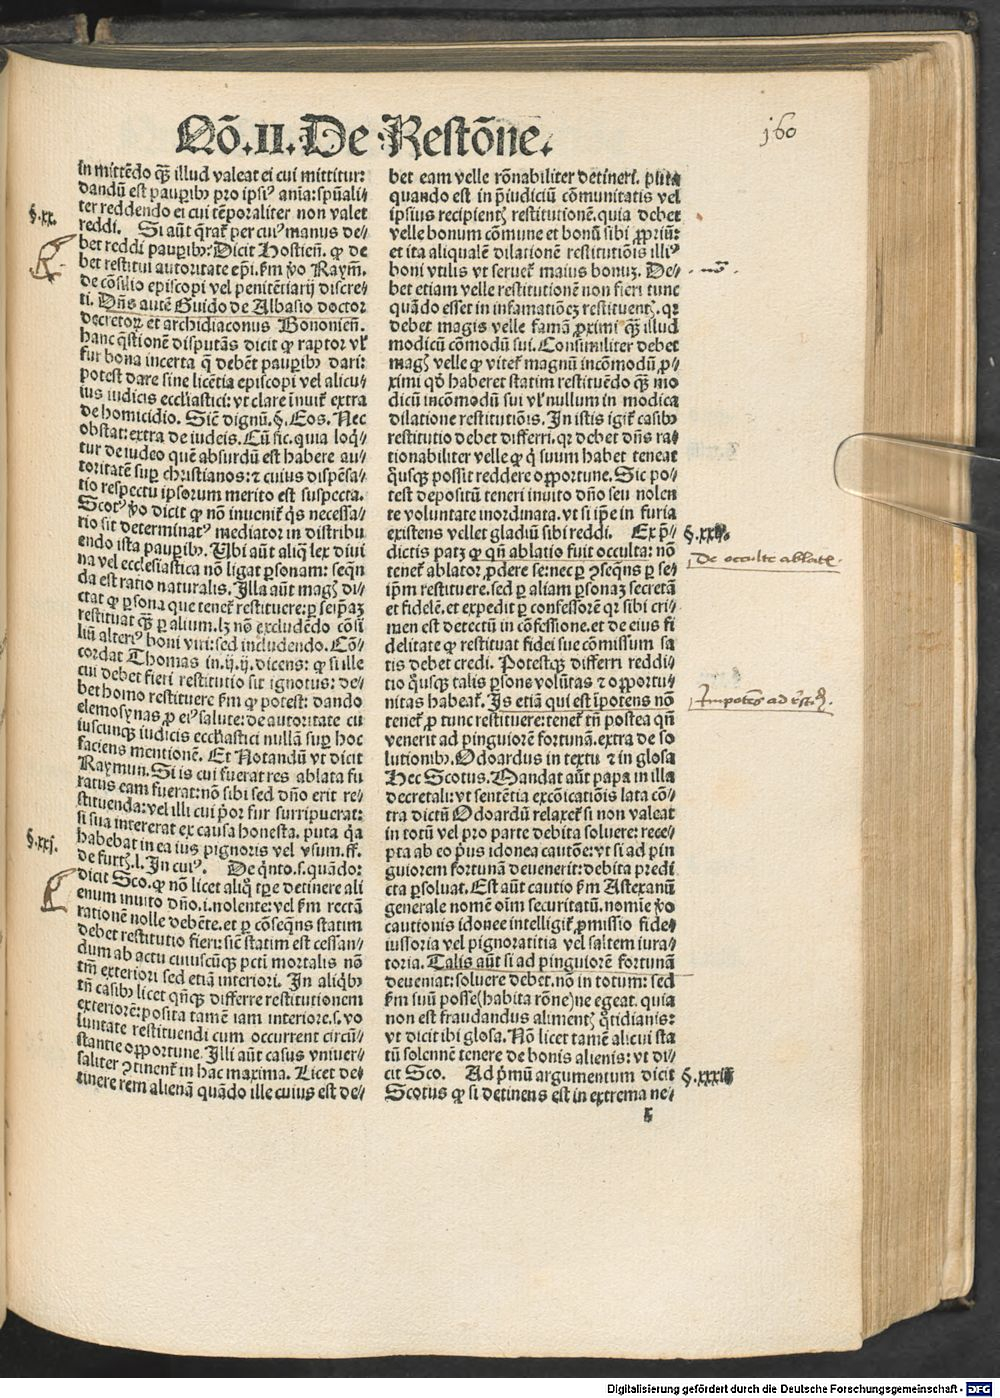 Nō.II.De Restōne.
j60
in mittēdo qȝ illud valeat ei cui mittitur:
dandū est pauꝑibꝫ pro ipsiꝰ aīa:spūali/
ter reddendo ei cui tēporaliter non valet
§.xx.
reddi. Si aūt q̄rat̃ per cuiꝰ manus de/
bet reddi pauꝑibꝫ:Dicit Hostieñ. ꝙ de
bet restitui autoritate ep̄i.s̄m ṽo Raym̄.
de cōsilio episcopi vel penitētiarij discre/
ti. Dn̄s autē Guido de Albasio doctor
decretoꝝ et archidiaconus Bononieñ.
hanc q̄stionē disputās dicit ꝙ raptor vl̃
fur bona incerta q̄ debēt pauꝑibꝫ dari:
potest dare sine licētia episcopi vel alicu/
ius iudicis eccl̃iastici:vt clare īnuit̃ extra
de homicidio. Sic̃ dignū.§.Eos. Nec
obstat:extra de iudeis.Cū sic.quia loq̄/
tur de iudeo quē absurdū est habere au/
toritatē suꝑ christianos:⁊ cuius dispēsa/
tio respectu ipsorum merito est suspecta.
Scotꝰ ṽo dicit ꝙ nō inuenit̃ q̇s necessa/
rio sit determinatꝰ mediator in distribu
endo ista pauꝑibꝫ. Ubi aūt aliq̄ lex diui
na vel ecclesiastica nō ligat ꝑsonam:seq̄n
da est ratio naturalis. Illa aūt magꝭ di/
ctat ꝙ ꝑsona que tenet̃ restituere:ꝑ seip̄aȝ
restituat qȝ ꝑ alium.lȝ nō excludēdo cōsi
liū alteriꝰ boni viri:sed includendo. Cō/
cordat Thomas in.ij.ij.dicens: ꝙ si ille
cui debet fieri restitutio sit ignotus: de/
bet homo restituere s̄m ꝙ potest: dando
elemosynas ꝓ eiꝰ salute:de autoritate cu
iuscunqȝ iudicis eccl̃iastici nullā suꝑ hoc
faciens mentionē. Et Notandū vt dicit
Raymun.Si is cui fuerat res ablata fu
ratus eam fuerat:nō sibi sed dn̄o erit re/
stituenda:vel illi cui p̃or fur surripuerat:
si sua intererat ex causa honesta. puta q̇a
§.xxj.
habebat in ea ius pignoris vel vsum.ff.
de furtꝭ.l.In cuiꝰ. De q̇nto.s.quādo:
dicit Sco.ꝙ nō licet aliq̊ tꝑe detinere ali
enum inuito dn̄o.i.nolente:vel s̄m rectā
rationē nolle debēte.et ꝑ cōseq̄ns statim
debet restitutio fieri:sic̃ statim est cessan/
dum ab actu cuiuscūqȝ pcti mortalis nō
tm̄ exteriori sed etiā interiori. In aliq̇bꝫ
tn̄ casibꝫ licet qn̄qȝ differre restitutionem
exteriorē:posita tamē iam interiore.s.vo
luntate restituendi cum occurrent circū/
stantie oꝓportune.Illi aūt casus vniuer/
saliter ꝯtinent̃ in hac maxima. Licet de/
tinere rem alienā quādo ille cuius est de/
bet eam velle rōnabiliter detineri. puta
quando est in p̄iudiciū cōmunitatis vel
ipsius recipientꝭ restitutionē.quia debet
velle bonum cōmune et bonū sibi ꝓpriū:
et ita aliqualē dilationē restitutiōis illiꝰ
boni vtilis vt seruet̃ maius bonuȝ. De/
bet etiam velle restitutionē non fieri tunc
quādo esset in infamatiōeȝ restituentꝭ.qꝛ
debet magis velle famā ꝓximi qȝ illud
modicū cōmodū sui.Consimiliter debet
magꝭ velle ꝙ vitet̃ magnū incōmodū ꝓ/
ximi qd̓ haberet statim restituēdo qȝ mo
dicū incōmodū sui vl̃ nullum in modica
dilatione restitutiōis. In istis igit̃ casibꝫ
restitutio debet differri.qꝛ debet dn̄s ra/
tionabiliter velle ꝙ q̇ suum habet teneat
q̊usqȝ possit reddere oꝓportune.Sic po/
test depositū teneri inuito dn̄o seu nolen
te voluntate inordinata.vt si ip̄e in furia
existens vellet gladiū sibi reddi. Ex p̄/
§.xxij.
dictis patȝ ꝙ qn̄ ablatio fuit occulta: nō
De occulte ablatis.
tenet̃ ablator ꝓdere se:nec ꝑ ꝯseq̄ns ꝑ se/
ip̄m restituere.sed ꝑ aliam ꝑsonaȝ secretā
et fidelē.et expedit ꝑ confessorē qꝛ sibi cri/
men est detectū in cōfessione.et de eius fi
delitate ꝙ restituat fidei sue cōmissum sa
tis debet credi. Potestqȝ differri reddi/
tio q̊usqȝ talis ꝑsone volūtas ⁊ oꝓportu/
nitas habeat̃. Is etiā qui est īpotens nō
Impotēs ad rest.
tenet̃ ꝑ tunc restituere:tenet̃ tn̄ postea qn̄
venerit ad pinguiorē fortunā.extra de so
lutionibꝫ.Odoardus in textu ⁊ in glosa
Hec Scotus.Mandat aūt papa in illa
decretali:vt sentētia excōicatiōis lata cō/
tra dictū Odoardū relaxet̃ si non valeat
in totū vel pro parte debita soluere: rece/
pta ab eo p̃us idonea cautōe:vt si ad pin
guiorem fortunā deuenerit:debita predi
cta ꝑsoluat.Est aūt cautio s̄m Astexanū
generale nomē oīm securitatū.nomīe ṽo
cautionis idonee intelligit̃ ꝓmissio fide/
iussoria vel pignoratitia vel saltem iura/
toria.Talis aūt si ad pinguiorē fortunā
deueniat:soluere debet.nō in totum: sed
s̄m suū posse(habita rōne)ne egeat. quia
non est fraudandus alimentꝭ q̊tidianis:
vt dicit ibi glosa. Nō licet tamē alicui sta
tū solennē tenere de bonis alienis: vt di/
cit Sco. Ad p̃mū argumentum dicit
§.xxiij
Scotus ꝙ si detinens est in extrema ne/
Digitalisierung gefördert durch die Deutsche Forschungsgemeinschaft - DFG